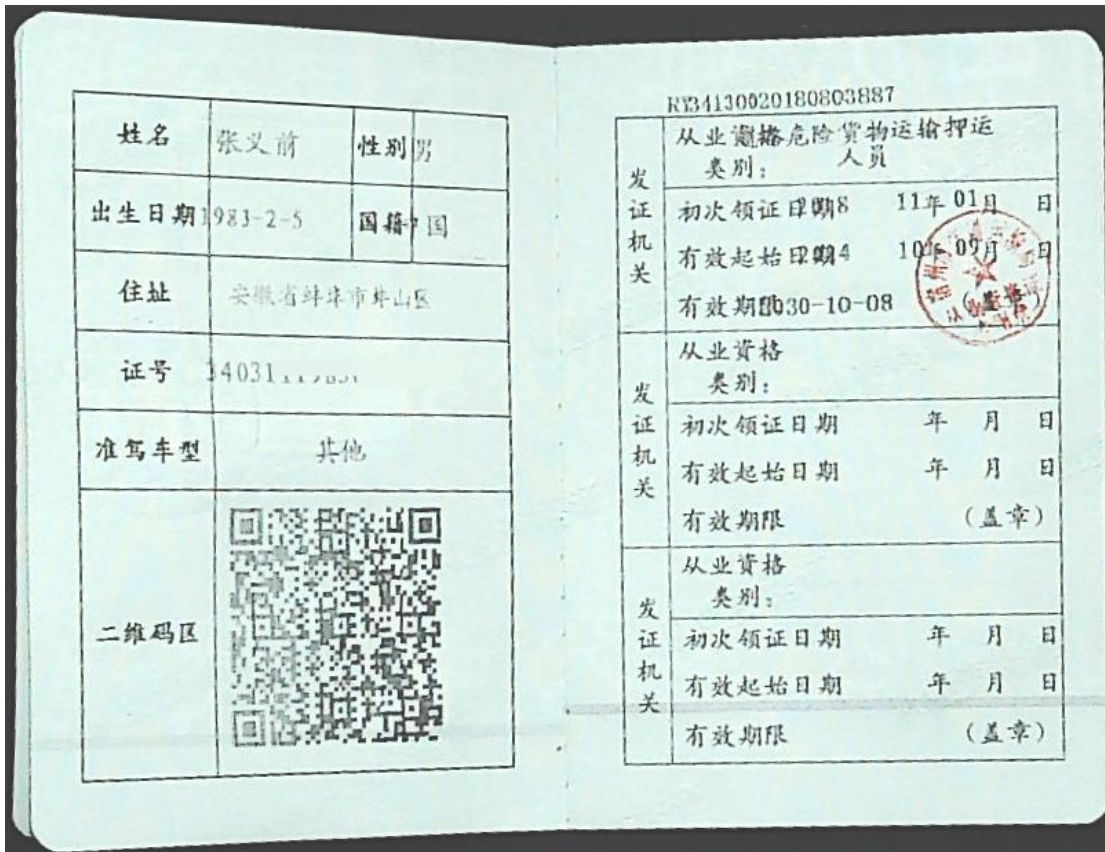 姓名 张义前 性别 男
出生日期 1983-2-5 国籍 中国
住址 安徽省蚌埠市蚌山区
证号
准驾车型 其他
二维码区
RY34130020180803887
发证机关
从业资格 危险货物运输押运
类别： 人员
初次领证日期 2018 11年 01月 日
有效起始日期 2024 10年 09月 日
有效期限 2030-10-08 (盖章)
发证机关
从业资格
类别：
初次领证日期 年 月 日
有效起始日期 年 月 日
有效期限 (盖章)
发证机关
从业资格
类别：
初次领证日期 年 月 日
有效起始日期 年 月 日
有效期限 (盖章)